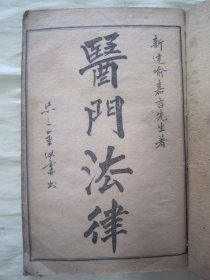 新建喻嘉言先生著
醫門法律